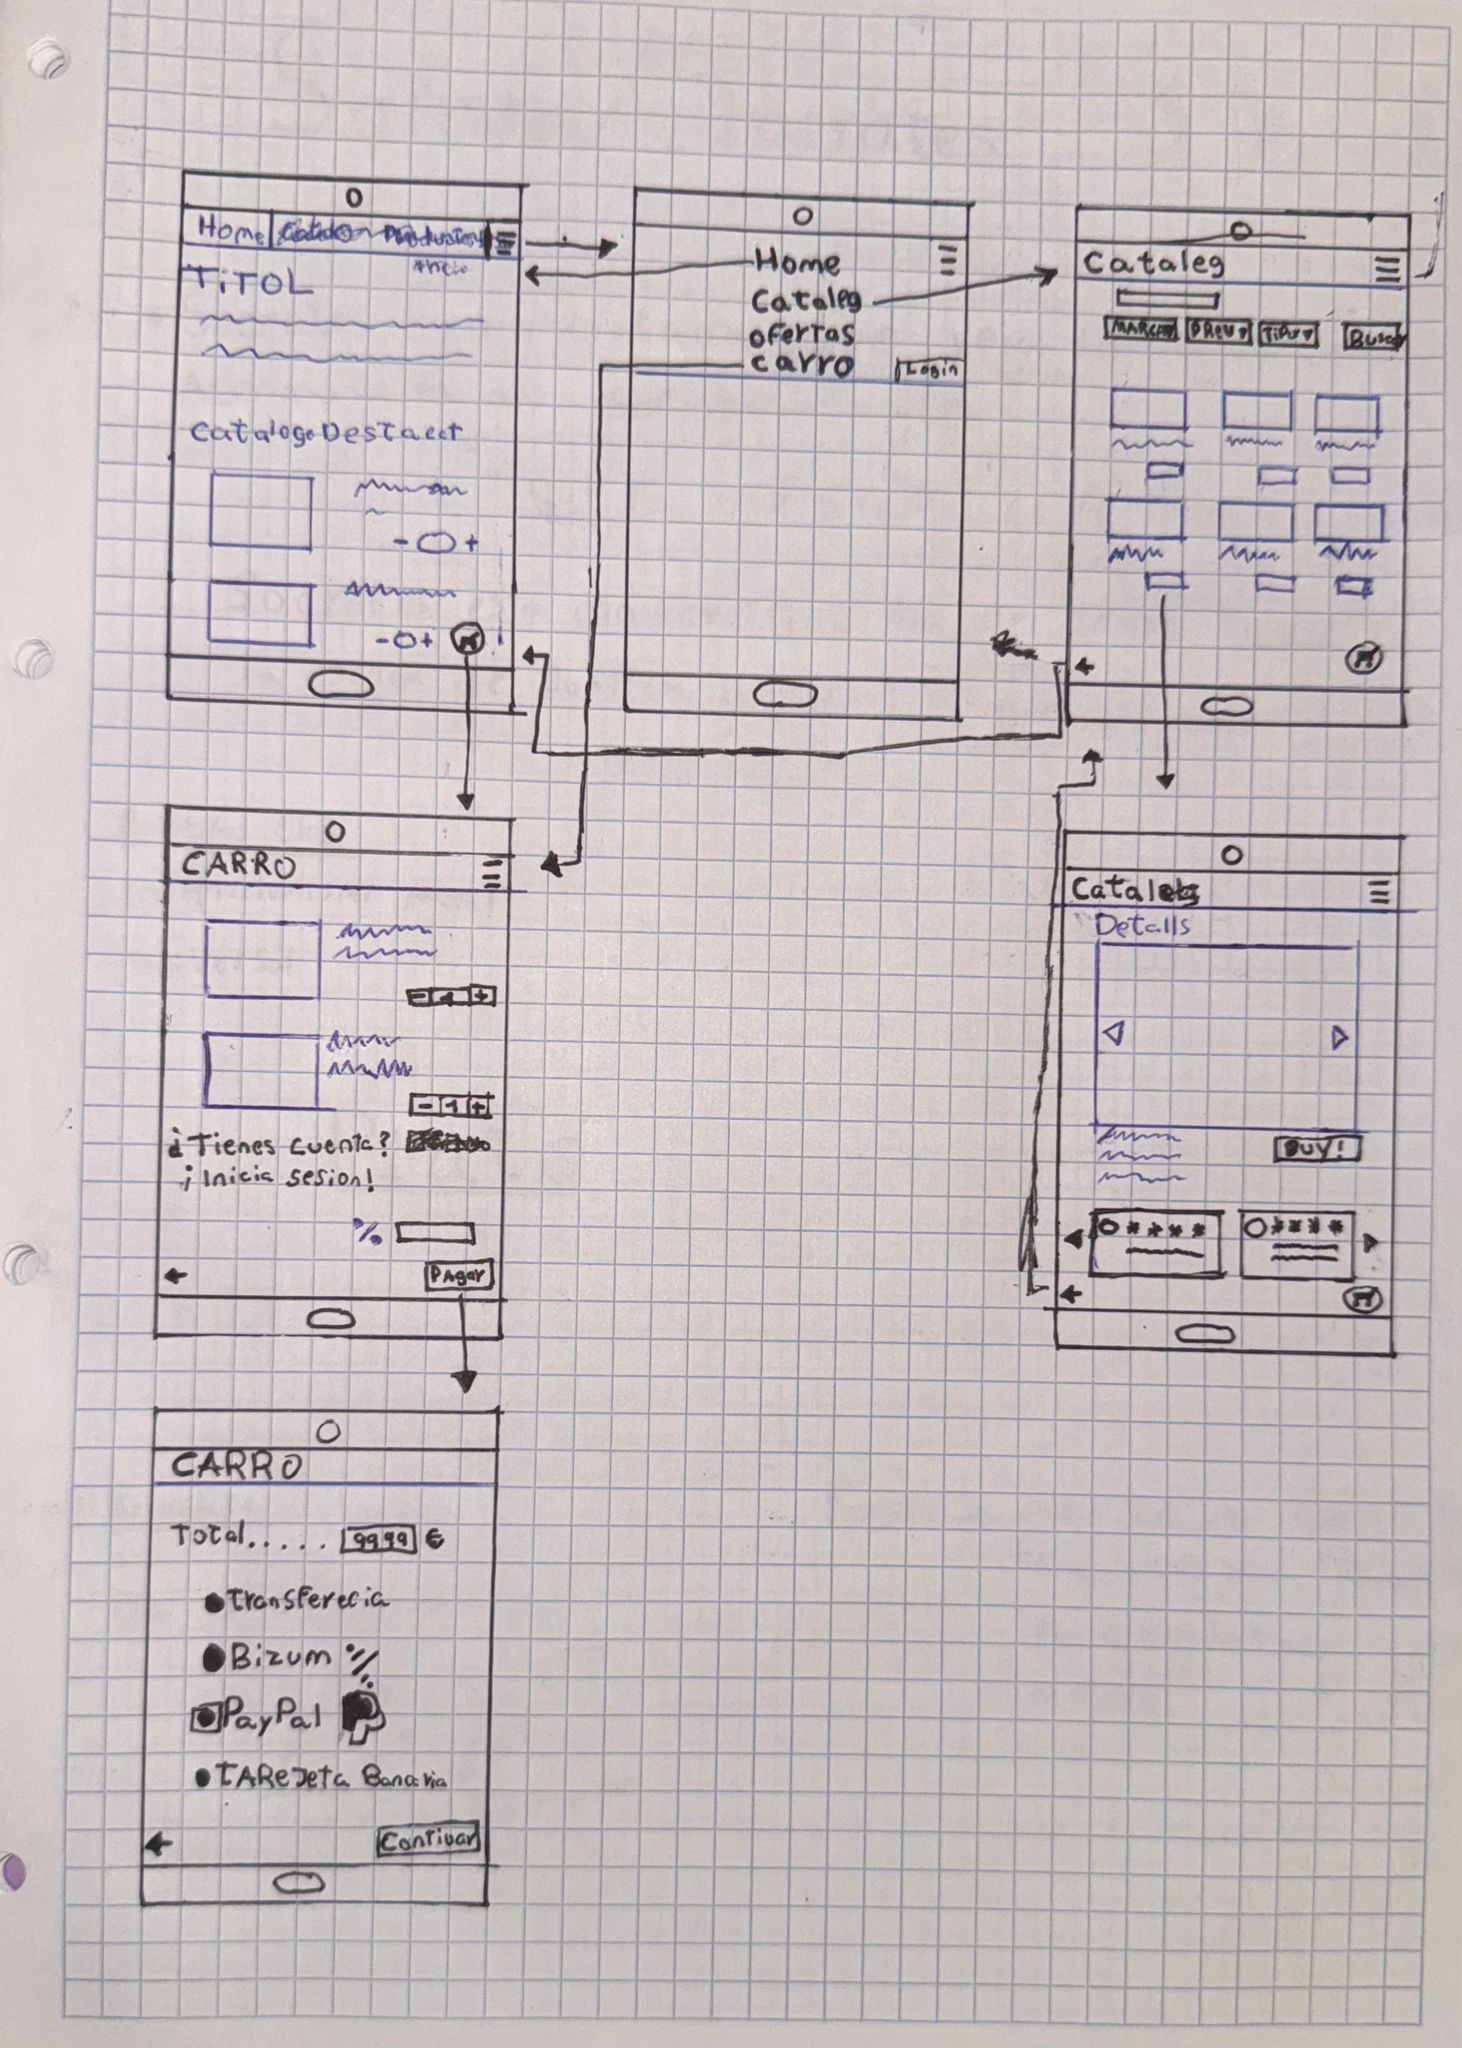 Home
TiTOL
Catalogo Destacat
- +
- +
Home
Cataleg
ofertas
carro
Login
Cataleg
MARCA
PREU
TIPU
Busca
CARRO
- 1 +
- 1 +
¿Tienes cuenta?
¡Inicia sesion!
%
PAgar
Details
BUY!
* * * *
* * * *
CARRO
Total..... 9999 €
Transferecia
Bizum
PayPal
TAReJeta Banaria
Contiuar